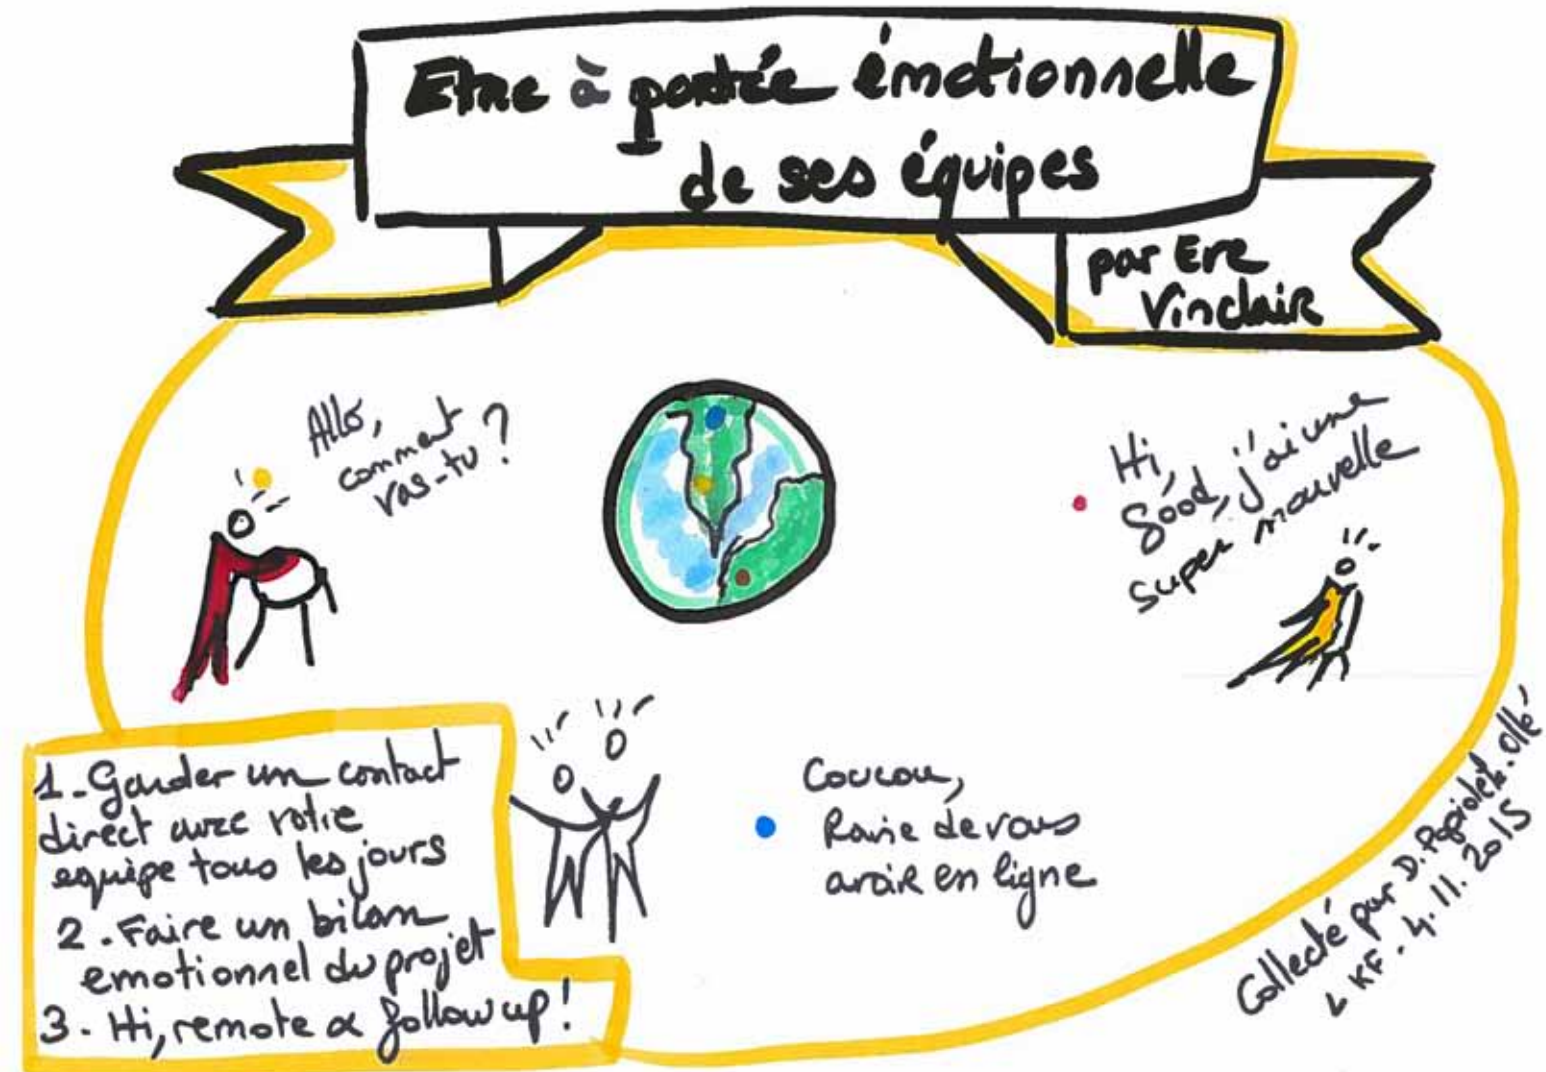 Etre à portée émotionnelle
de ses équipes
par Eve
Vinclair
Allo,
comment
vas-tu ?
Hi,
Good, j'ai une
super nouvelle
Coucou,
Ravie de vous
avoir en ligne
1 - Garder un contact
direct avec votre
equipe tous les jours
2 - Faire un bilan
emotionnel du projet
3 - Hi, remote & follow up !
Collecté par D.
KF - 4.11.2015